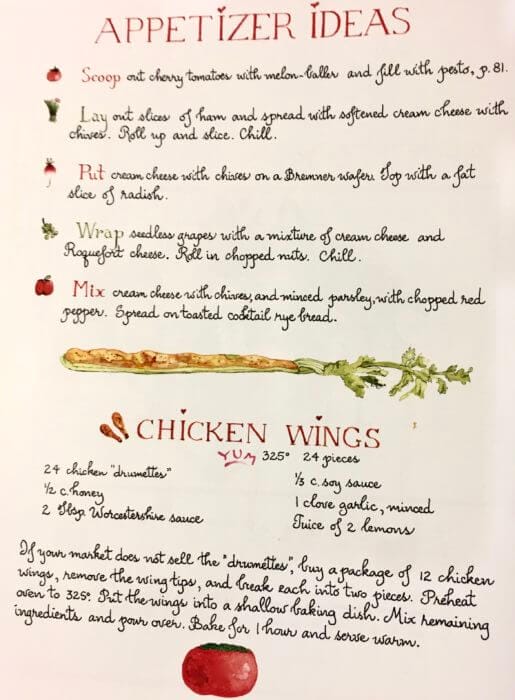 APPETIZER IDEAS
Scoop out cherry tomatoes with melon-baller and fill with pesto, p. 81.
Lay out slices of ham and spread with softened cream cheese with
chives. Roll up and slice. Chill.
Put cream cheese with chives on a Bremner wafer. Top with a fat
slice of radish.
Wrap seedless grapes with a mixture of cream cheese and
Roquefort cheese. Roll in chopped nuts. Chill.
Mix cream cheese with chives, and minced parsley, with chopped red
pepper. Spread on toasted cocktail rye bread.
CHICKEN WINGS
YUM 325° 24 pieces
24 chicken "drumettes"
½ c. honey
2 Tbsp. Worcestershire sauce
⅓ c. soy sauce
1 clove garlic, minced
Juice of 2 lemons
If your market does not sell the "drumettes", buy a package of 12 chicken
wings, remove the wing tips, and break each into two pieces. Preheat
oven to 325°. Put the wings into a shallow baking dish. Mix remaining
ingredients and pour over. Bake for 1 hour and serve warm.